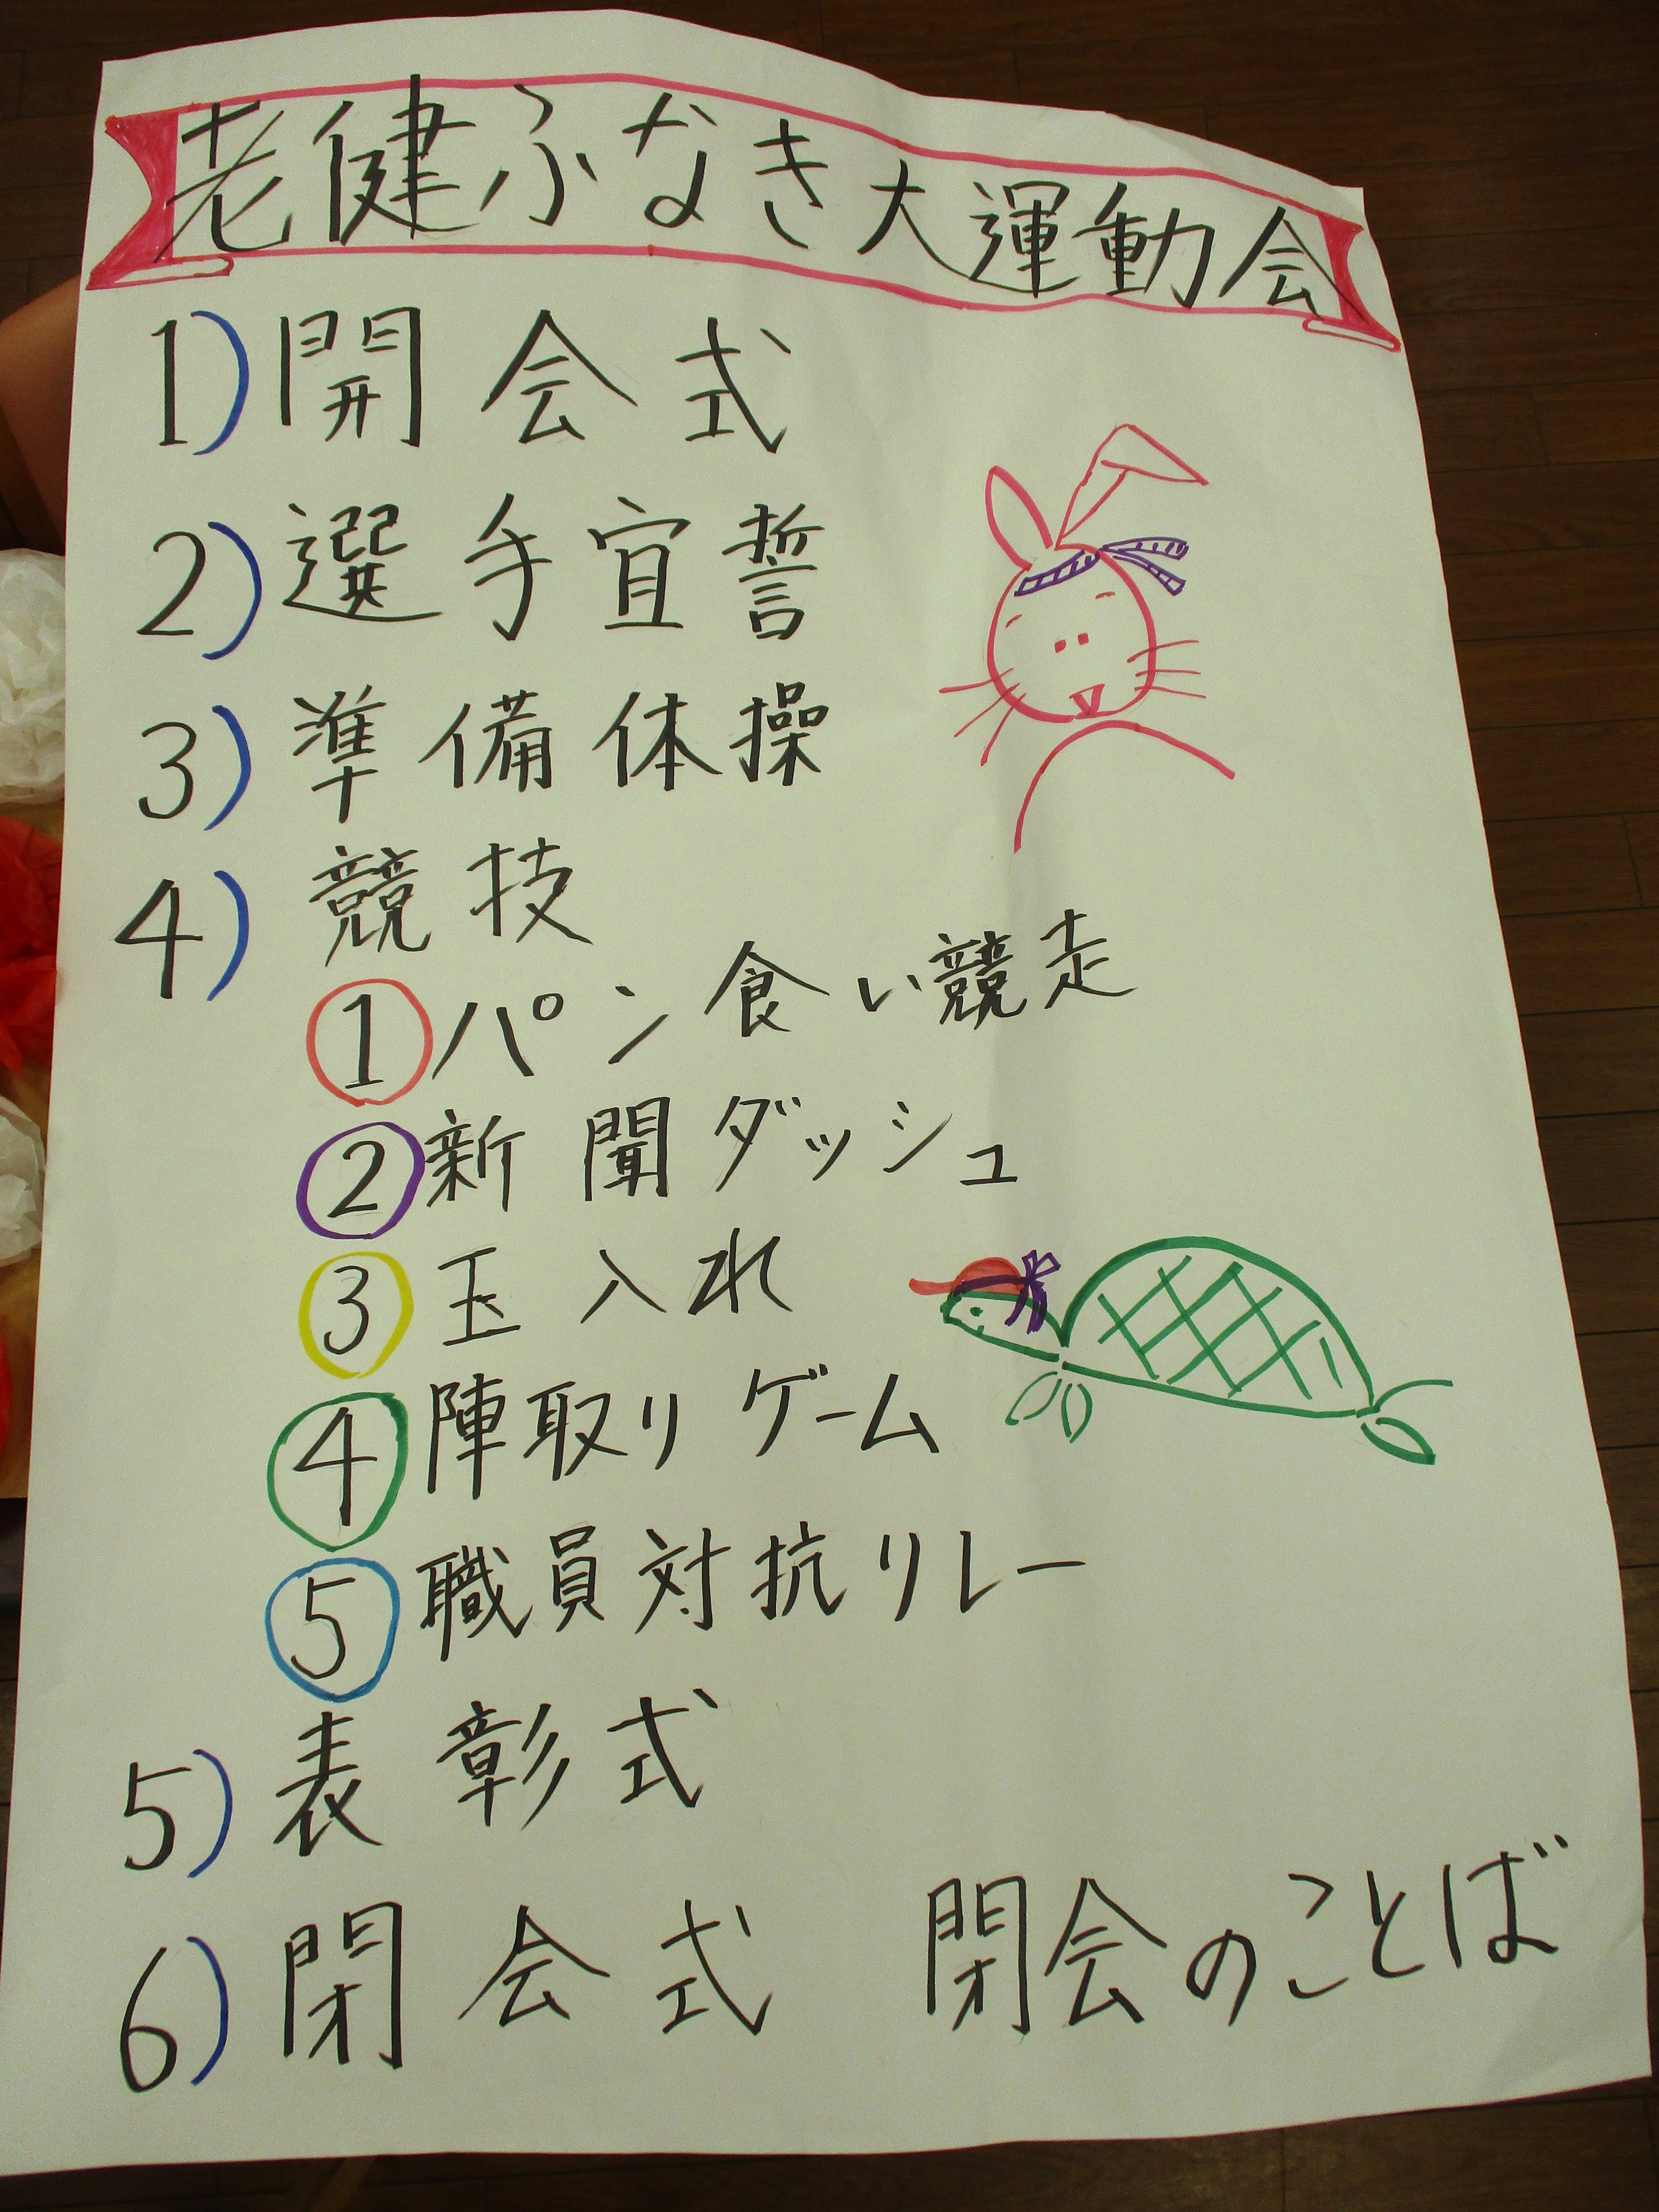 老健ふなき大運動会
1) 開会式
2) 選手宣誓
3) 準備体操
4) 競技
① パン食い競走
② 新聞ダッシュ
③ 玉入れ
④ 陣取りゲーム
⑤ 職員対抗リレー
5) 表彰式
6) 閉会式 閉会のことば